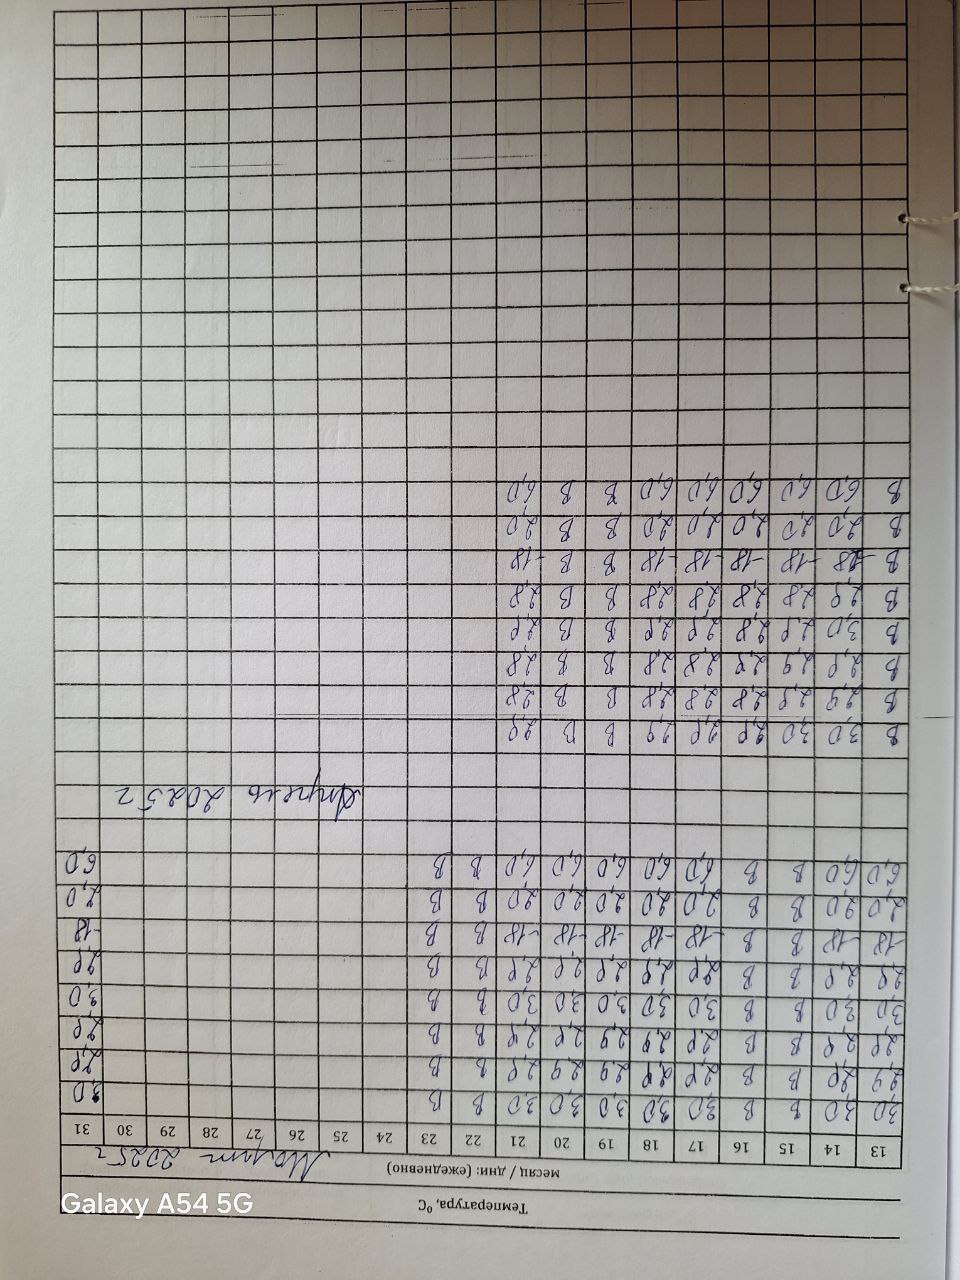 Температура, ⁰С
месяц / дни: (ежедневно)
Март 2025 г
13 14 15 16 17 18 19 20 21 22 23 24 25 26 27 28 29 30 31
3,0 3,0 В В 3,0 3,0 3,0 3,0 3,0 В В 3,0
2,9 2,9 В В 2,9 2,9 2,9 2,9 2,9 В В 2,9
2,9 2,9 В В 2,9 2,9 2,9 2,9 2,9 В В 2,9
3,0 3,0 В В 3,0 3,0 3,0 3,0 3,0 В В 3,0
2,9 2,9 В В 2,9 2,9 2,9 2,9 2,9 В В 2,9
-18 -18 В В -18 -18 -18 -18 -18 В В -18
2,0 2,0 В В 2,0 2,0 2,0 2,0 2,0 В В 2,0
6,0 6,0 В В 6,0 6,0 6,0 6,0 6,0 В В 6,0
Апрель 2025 г
В 3,0 3,0 2,9 2,9 2,9 В В 2,9
В 2,9 2,9 2,8 2,8 2,8 В В 2,8
В 2,9 2,9 2,9 2,8 2,8 В В 2,8
В 3,0 2,9 2,8 2,9 2,9 В В 2,9
В 2,9 2,8 2,8 2,8 2,8 В В 2,8
В -18 -18 -18 -18 -18 В В -18
В 2,0 2,0 2,0 2,0 2,0 В В 2,0
В 6,0 6,0 6,0 6,0 6,0 В В 6,0
Galaxy A54 5G